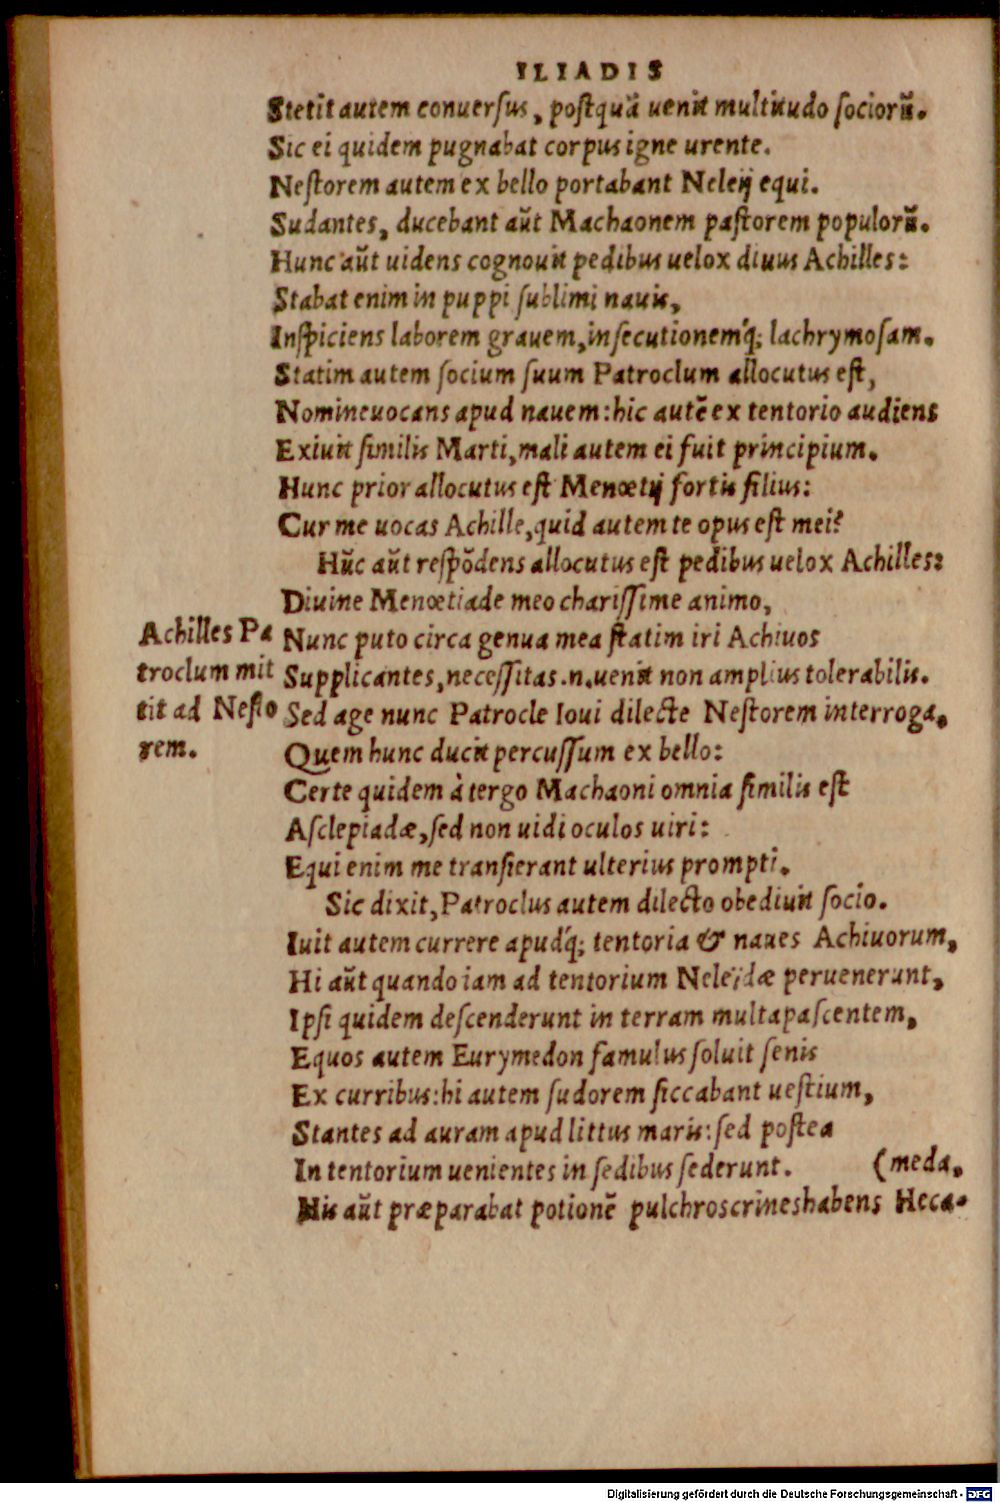 ILIADIS
Stetit autem conuersus, postquã uenit multitudo sociorũ.
Sic ei quidem pugnabat corpus igne urente.
Nestorem autem ex bello portabant Neleij equi.
Sudantes, ducebant aũt Machaonem pastorem populorũ.
Hunc aũt uidens cognouit pedibus uelox diuus Achilles:
Stabat enim in puppi sublimi nauis,
Inspiciens laborem grauem, insecutionemq́; lachrymosam.
Statim autem socium suum Patroclum allocutus est,
Nomine uocans apud nauem: hic autẽ ex tentorio audiens
Exiuit similis Marti, mali autem ei fuit principium.
Hunc prior allocutus est Menœtij fortis filius:
Cur me uocas Achille, quid autem te opus est mei?
Hũc aũt respõdens allocutus est pedibus uelox Achilles:
Diuine Menœtiade meo charissime animo,
Nunc puto circa genua mea statim iri Achiuos
Supplicantes, necessitas.n.uenit non amplius tolerabilis.
Sed age nunc Patrocle Ioui dilecte Nestorem interroga,
Quem hunc ducit percussum ex bello:
Certe quidem à tergo Machaoni omnia similis est
Asclepiadæ, sed non uidi oculos uiri:
Equi enim me transierant ulterius prompti.
Sic dixit, Patroclus autem dilecto obediuit socio.
Iuit autem currere apudq́; tentoria & naues Achiuorum,
Hi aũt quando iam ad tentorium Neleidæ peruenerunt,
Ipsi quidem descenderunt in terram multapascentem,
Equos autem Eurymedon famulus soluit senis
Ex curribus: hi autem sudorem siccabant uestium,
Stantes ad auram apud littus maris: sed postea
In tentorium uenientes in sedibus sederunt. (meda.
His aũt præparabat potionẽ pulchroscrineshabens Heca-
Achilles Pa
troclum mit
tit ad Nesto
rem.
Digitalisierung gefördert durch die Deutsche Forschungsgemeinschaft - DFG